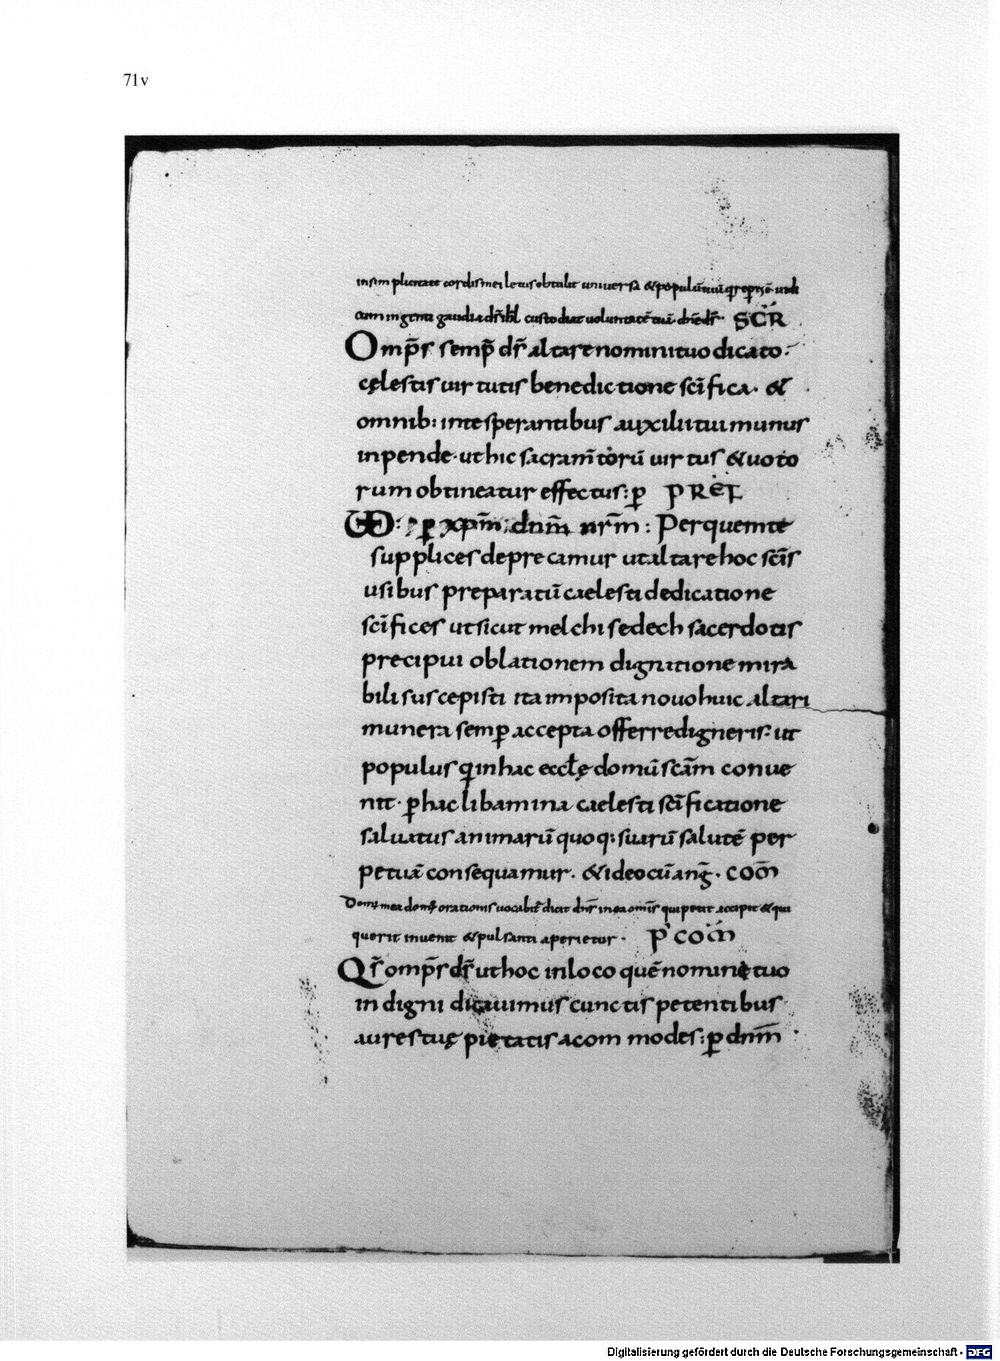 71v
in simplicitate cordis mei letus obtuli universa & populū tuū qͥ reptꝰ ē vidi
cum ingenti gaudia ds̄ isrl custodiat voluntatē tuā dn̄e ds̄ SCR̄
Omp̄s semp̄ ds̄ altare nomini tuo dicato
cęlestis virtutis benedictione sc̄ifica· &
omnib: inte sperantibus auxilii tui munus
inpende· ut hic sacram̄torū virtus & voto
rum obtineatur effectus: ꝑ PREF
VD: ꝑ xpm̄ dnm̄ nr̄m: Per quem te
supplices deprecamur ut altare hoc sc̄is
usibus preparatū caelesti dedicatione
sc̄ifices ut sicut melchisedech sacerdotis
precipui oblationem dignitione mira
bili suscepisti ita imposita novo huic altari
munera semp̄ accepta offerre digneris: ut
populus qͥ in hac eccłę domū sc̄am conve
nit· ꝑ hac libamina caelesti sc̄ificatione
salvatus animarū quoq: suarū salutē per
petuā consequamur· & ideo cū anḡ· COM̄
Domꝰ mea domꝰ orationis vocabit̄ dicit dn̄s in ea omīs qui petit accipit & qui
querit invenit & pulsanti aperietur· P' COM̄
Qs̄ omp̄s ds̄ ut hoc in loco quē nomine tuo
indigni dicavimus cunctis petentibus
aures tuę pietatis acommodes: ꝑ dnm̄
Digitalisierung gefördert durch die Deutsche Forschungsgemeinschaft - DFG